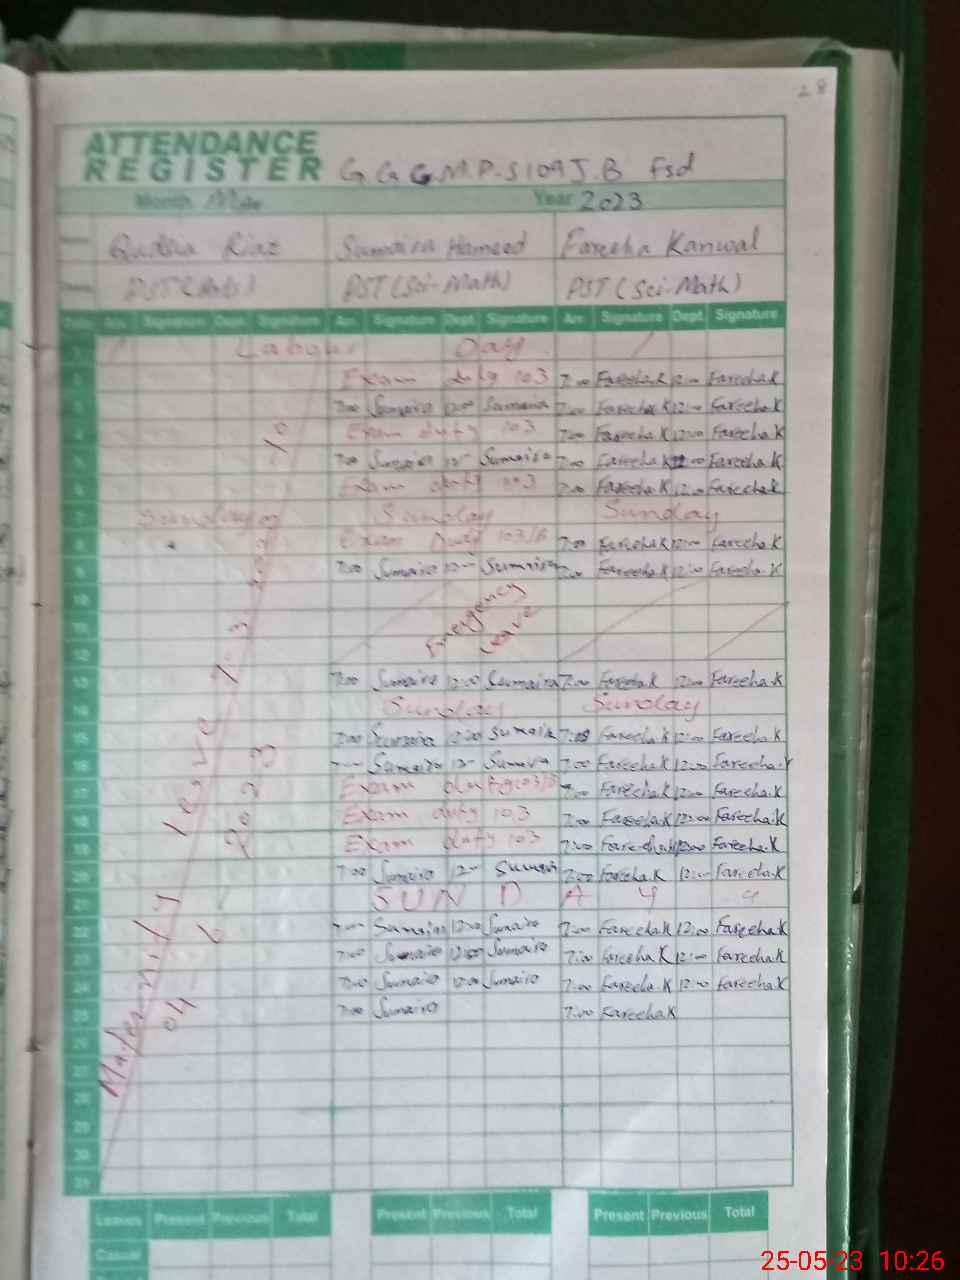 28
ATTENDANCE
REGISTER G.G.G.M.P.S 109 J.B Fsd
Month Year 2023
Qudsia Riaz Sumaira Hameed Fareeha Kanwal
PST (Arts) PST (Sci-Math) PST (Sci-Math)
Arr. Signature Dept. Signature Arr. Signature Dept. Signature Arr. Signature Dept. Signature
1 Labour Day
2 Exam duty 103 7:00 Fareeha.K 12:00 Fareeha.K
3 7:00 Sumaira 12:00 Sumaira 7:00 Fareeha.K 12:00 Fareeha.K
4 Exam duty 103 7:00 Fareeha.K 12:00 Fareeha.K
5 7:00 Sumaira 12- Sumaira 7:00 Fareeha.K 12:00 Fareeha.K
6 Exam duty 103 7:00 Fareeha.K 12:00 Fareeha.K
7 Sunday Sunday Sunday
8 Exam 103/B 7:00 Fareeha.K 12:00 Fareeha.K
9 7:00 Sumaira 12- Sumaira 7:00 Fareeha.K 12:00 Fareeha.K
10 Emergency
11 Leave
12
13 7:00 Sumaira 12:00 Sumaira 7:00 Fareeha.K 12:00 Fareeha.K
14 Sunday Sunday
15 7:00 Sumaira 12:00 Sumaira 7:00 Fareeha.K 12:00 Fareeha.K
16 Sumaira 12- Sumaira 7:00 Fareeha.K 12:00 Fareeha.K
17 Exam duty 7:00 Fareeha.K 12:00 Fareeha.K
18 Exam duty 103 7:00 Fareeha.K 12:00 Fareeha.K
19 Exam duty 103 7:00 Fareeha.K 12:00 Fareeha.K
20 7:00 Sumaira 12- Sumaira 7:00 Fareeha.K 12:00 Fareeha.K
21 SUNDAY
22 Sumaira 12:00 Sumaira 7:00 Fareeha.K 12:00 Fareeha.K
23 7:00 Sumaira 12:00 Sumaira 7:00 Fareeha.K 12:00 Fareeha.K
24 7:00 Sumaira 12:00 Sumaira 7:00 Fareeha.K 12:00 Fareeha.K
25 7:00 Sumaira 7:00 Fareeha.K
26
27
28
29
30
31
Maternity Leave
Leaves Present Previous Total Present Previous Total Present Previous Total
Casual
25-05-23 10:26